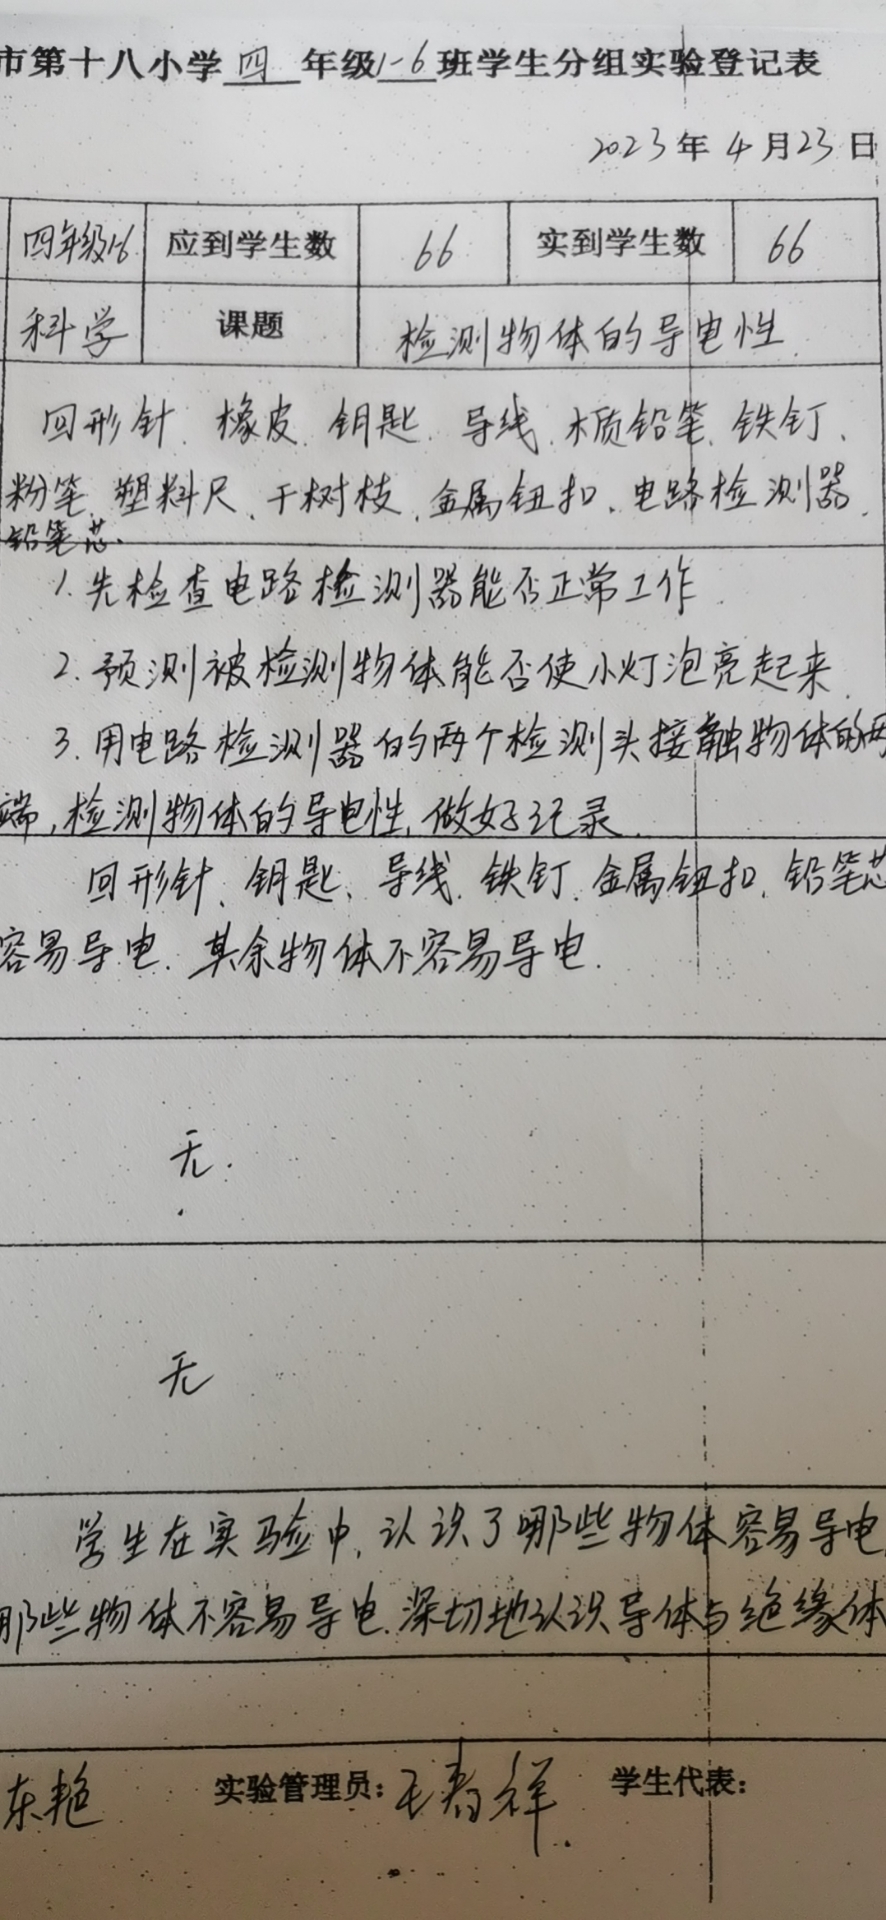 市第十八小学四年级1-6班学生分组实验登记表
2023年4月23日
四年级1-6 应到学生数 66 实到学生数 66
科学 课题 检测物体的导电性
回形针、橡皮、钥匙、导线、木质铅笔、铁钉、
粉笔、塑料尺、干树枝、金属钮扣、电路检测器、
铅笔芯.
1.先检查电路检测器能否正常工作.
2.预测被检测物体能否使小灯泡亮起来.
3.用电路检测器的两个检测头接触物体的两
端,检测物体的导电性,做好记录.
回形针、钥匙、导线、铁钉、金属钮扣、铅笔芯
容易导电.其余物体不容易导电.
无.
无
学生在实验中,认识了哪些物体容易导电,
那些物体不容易导电.深切地认识导体与绝缘体
东艳 实验管理员:王春祥. 学生代表: